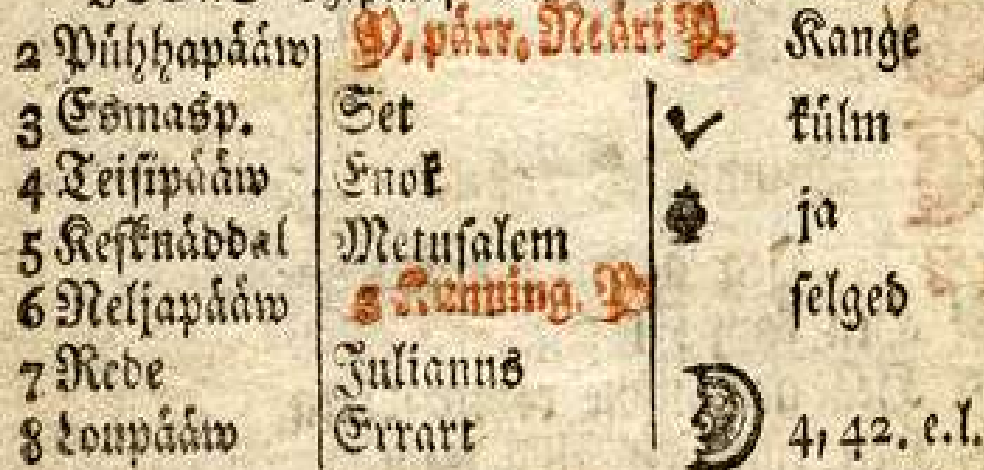 2 Pühhapääw P. pärr. Neäri P. Kange
3 Esmasp. Set külm
4 Teisipääw Enok ja
5 Keſknäddal Metuſalem
6 Neljapääw 3 Kunning. P. ſelged
7 Rede Julianus
8 Loupääw Errart 4, 42. e.l.